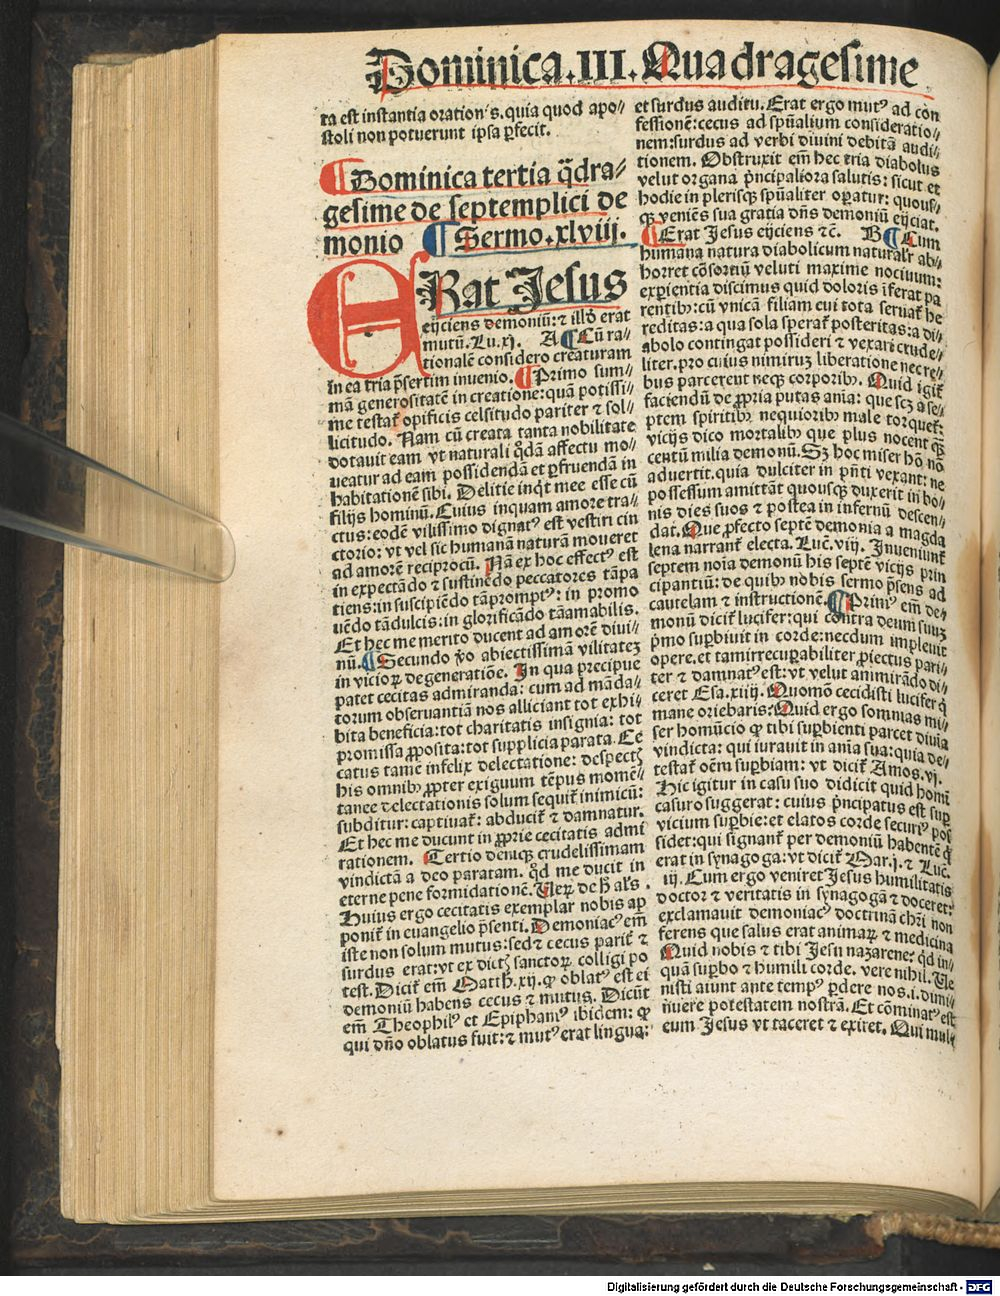 Dominica.III.Quadragesime
ta est instantia oration̄s.quia quod apo⸗
stoli non potuerunt ipsa ꝑfecit.
¶Dominica tertia q̄dra⸗
gesime de septemplici de
monio ¶Sermo.xlviij.
ERat Jesus
eijciens demoniū:⁊ illđ erat
mutū.Lu.xj. A ¶Cū ra⸗
tionalē considero creaturam
in ea tria p̄sertim inuenio. ¶Primo sum⸗
mā generositatē in creatione:quā potissi⸗
me testat᷑ opificis celsitudo pariter ⁊ sol⸗
licitudo. Nam cū creata tanta nobilitate
dotauit eam vt naturali q̇dā affectu mo⸗
ueatur ad eam possidendā et ꝑfruendā in
habitationē sibi. Delitie inq̇t mee esse cū
filijs hominū.Cuius inquam amore tra⸗
ctus:eodē vilissimo dignatꝰ est vestiri cin
ctorio:vt vel sic humanā naturā moueret
ad amorē reciprocū. Nā ex hoc effectꝰ est
in expectādo ⁊ sustinēdo peccatores tāpa
tiens:in suscipiēdo tāpromptꝰ: in promo
uēdo tādulcis:in glorificādo tāamabilis.
Et hec me merito ducent ad amorē diui⸗
nū.¶Secundo v̄o abiectissimā vilitateꝫ
in vicioꝝ degeneratiōe. In qua precipue
patet cecitas admiranda: cum ad māda⸗
torum obseruantiā nos alliciant tot exhi⸗
bita beneficia:tot charitatis insignia: tot
promissa ꝓposita:tot supplicia parata. Ce
catus tamē infelix delectatione: despectꝭ
his omnibꝰ ꝓpter exiguum tēpus momē⸗
tanee delectationis solum sequit᷑ inimicū:
subditur: captiuat᷑: abducit᷑ ⁊ damnatur.
Et hec me ducunt in ꝓprie cecitatis admi
rationem. Tertio deniqꝫ crudelissimam
vindictā a deo paratam. q̇d me ducit in
eterne pene formidationē. Veꝝ de h̄ al's .
Huius ergo cecitatis exemplar nobis ap
ponit᷑ in euangelio p̄senti. Demoniacꝰ em̄
iste non solum mutus:sed ⁊ cecus parit᷑ ⁊
surdus erat:vt ex dictꝭ sanctoꝝ colligi po
test. Dicit᷑ em̄ Matth.xij. ꝙ oblatꝰ est ei
demoniū habens cecus ⁊ mutus. Dicūt
em̄ Theophilꝰ et Epiphaniꝰ ibidem: ꝙ
qui dn̄o oblatus fuit:⁊ mutꝰ erat lingua:
et surdus auditu. Erat ergo mutꝰ ad con
fessionē:cecus ad spūalium consideratio⸗
nem:surdus ad verbi diuini debitā audi⸗
tionem. Obstruxit em̄ hec tria diabolus
velut organa p̄ncipaliora salutis: sicut et
hodie in plerisqꝫ spūaliter oꝑatur: quous⸗
qꝫ veniēs sua gratia dn̄s demoniū eijciat.
¶Erat Jesus eijciens ⁊c̄. B¶Cum
humana natura diabolicum natural'r ab⸗
horret cōsortiū veluti maxime nociuum:
exꝑientia discimus quid doloris īferat pa
rentibꝰ:cū vnicā filiam cui tota seruat᷑ he
reditas:a qua sola sperat᷑ posteritas:a di⸗
abolo contingat possideri ⁊ vexari crude⸗
liter.pro cuius nimiruꝫ liberatione nec re⸗
bus parcerent neqꝫ corporibꝰ. Quid igit᷑
faciendū de ꝓpria putas aīa: que scꝫ a se⸗
ptem spiritibꝰ nequioribꝰ male torquet᷑:
vicijs dico mortalibꝰ que plus nocent qꝫ
centū milia demonū.Sꝫ hoc miser hō nō
aduertit.quia dulciter in p̄nti vexant: ne
possessum amittāt quousqꝫ duxerit in bo⸗
nis dies suos ⁊ postea in infernū descen⸗
dat.Que ꝓfecto septē demonia a magda
lena narrant᷑ electa. Luc̄.viij. Jnueniunt᷑
septem noīa demonū his septē vicijs prin
cipantiū: de quibꝰ nobis sermo p̄sens ad
cautelam ⁊ instructionē.¶Primꝰ em̄ de⸗
monū dicit᷑ lucifer:qui contra deum suuꝫ
p̄mo suꝑbiuit in corde:necdum impleuit
opere.et tamirrecuꝑabiliter ꝓiectus pari⸗
ter ⁊ damnatꝰ est: vt velut animirādo di⸗
ceret Esa.xiiij. Quomō cecidisti lucifer q̇
mane oriebaris:Quid ergo somnias mi⸗
ser homūcio ꝙ tibi suꝑbienti parcet diuīa
vindicta: qui iurauit in aīa sua:quia de⸗
testat᷑ oēm suꝑbiam: vt dicit᷑ Amos.vj.
Hic igitur in casu suo didicit quid homī
casuro suggerat: cuius p̄ncipatus est suꝑ
vicium suꝑbie:et elatos corde securiꝰ pos
sidet:qui signant᷑ per demoniū habentē q̇
erat in synagoga: vt dicit᷑ Mar.j.⁊ Luc̄.
iij. Cum ergo veniret Jesus humilitatis
doctor ⁊ veritatis in synagogā ⁊ doceret:
exclamauit demoniacꝰ doctrinā chr̄i non
ferens que salus erat animaꝝ ⁊ medicina
Quid nobis ⁊ tibi Jesu nazarene: q̇d in⸗
quā suꝑbo ⁊ humili corde. vere nihil. Ve
nisti aiunt ante tempꝰ ꝑdere nos.i.dimi⸗
nuere potestatem nostrā. Et cōminatꝰ est
eum Jesus vt taceret ⁊ exiret. Qui mul⸗
Digitalisierung gefördert durch die Deutsche Forschungsgemeinschaft - DFG